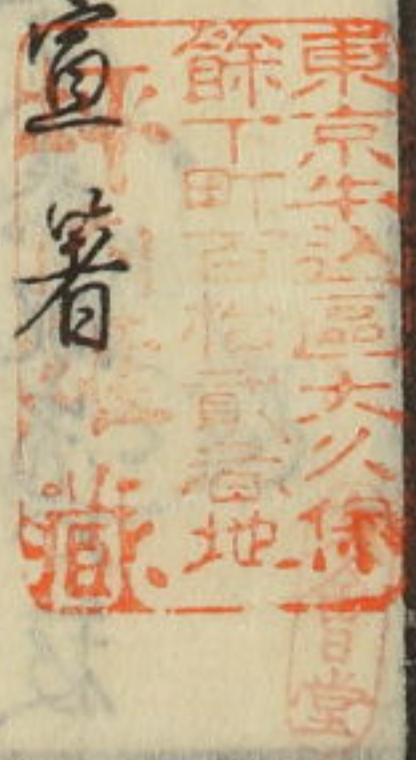 東京牛込區大久保
餘丁町百拾貳番地
藏
宣著
堂